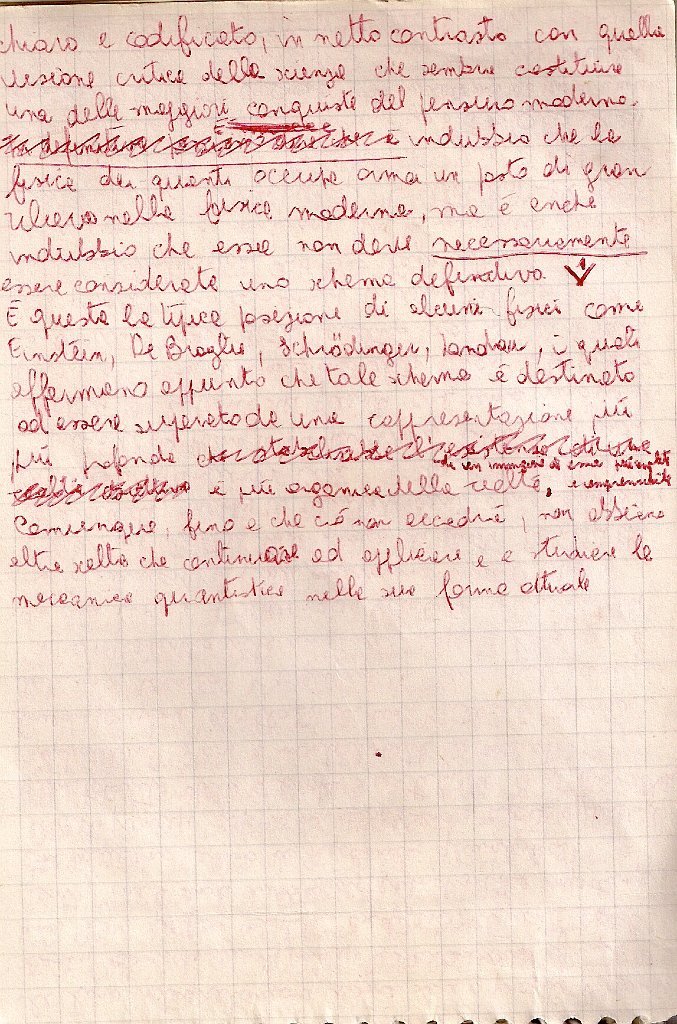 chiaro e codificato, in netto contrasto con quella
visione critica della scienza che sembra costituire
una delle maggiori conquiste del pensiero moderno.
È indubbio che la
fisica dei quanti occupa ormai un posto di gran
rilievo nella fisica moderna, ma è anche
indubbio che essa non deve necessariamente
essere considerata uno schema definitivo
È questa la tipica posizione di alcuni fisici come
Einstein, De Broglie, Schrödinger, Landau, i quali
affermano appunto che tale schema è destinato
ad essere superato da una rappresentazione più
più profonda
di un immagine di essa più completa
e più organica della realtà, e comprensibile
Comunque, fino a che ciò non accadrà, non abbiamo
altra scelta che continuare ad applicare e a studiare la
meccanica quantistica nella sua forma attuale